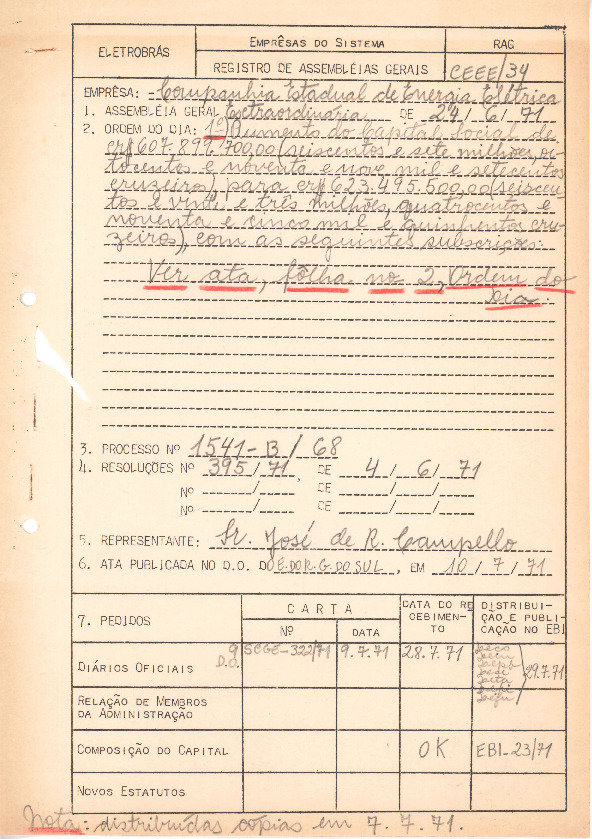 ELETROBRÁS
EMPRÊSAS DO SISTEMA
RAG
REGISTRO DE ASSEMBLÉIAS GERAIS
CEEE/34
EMPRÊSA: - Companhia Estadual de Energia Elétrica
1. ASSEMBLÉIA GERAL Extraordinária DE 24/6/71
2. ORDEM DO DIA: 1º) Aumento do Capital Social de
cr$ 607.899.700,00 (seiscentos e sete milhões, oi-
tocentos e noventa e nove mil e setecentos
cruzeiros) para cr$ 623.495.500,00 (seiscen
tos e vinte e três milhões, quatrocentos e
noventa e cinco mil e quinhentos cru-
zeiros), com as seguintes subscrições:
Ver ata, fôlha no 2, Ordem do
Dia.
3. PROCESSO Nº 1541-B/68
4. RESOLUÇÕES Nº 395/71, DE 4/6/71
Nº ____/____ DE ____/____/____
Nº ____/____ DE ____/____/____
5. REPRESENTANTE: Sr. José de R. Campello
6. ATA PUBLICADA NO D.O. DO E.DO R.G.DO SUL, EM 10/7/71
7. PEDIDOS
CARTA
Nº
DATA
DATA DO RE
CEBIMEN-
TO
DISTRIBUI-
ÇÃO E PUBLI-
CAÇÃO NO EBI
DIÁRIOS OFICIAIS
9
D.O.
SCGE-322/71
9.7.71
28.7.71
29.7.71
RELAÇÃO DE MEMBROS
DA ADMINISTRAÇÃO
COMPOSIÇÃO DO CAPITAL
OK
EBI-23/71
NOVOS ESTATUTOS
Nota: distribuídas copias em 7.7.71.